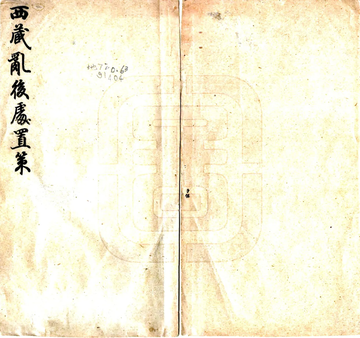 西藏亂後處置策